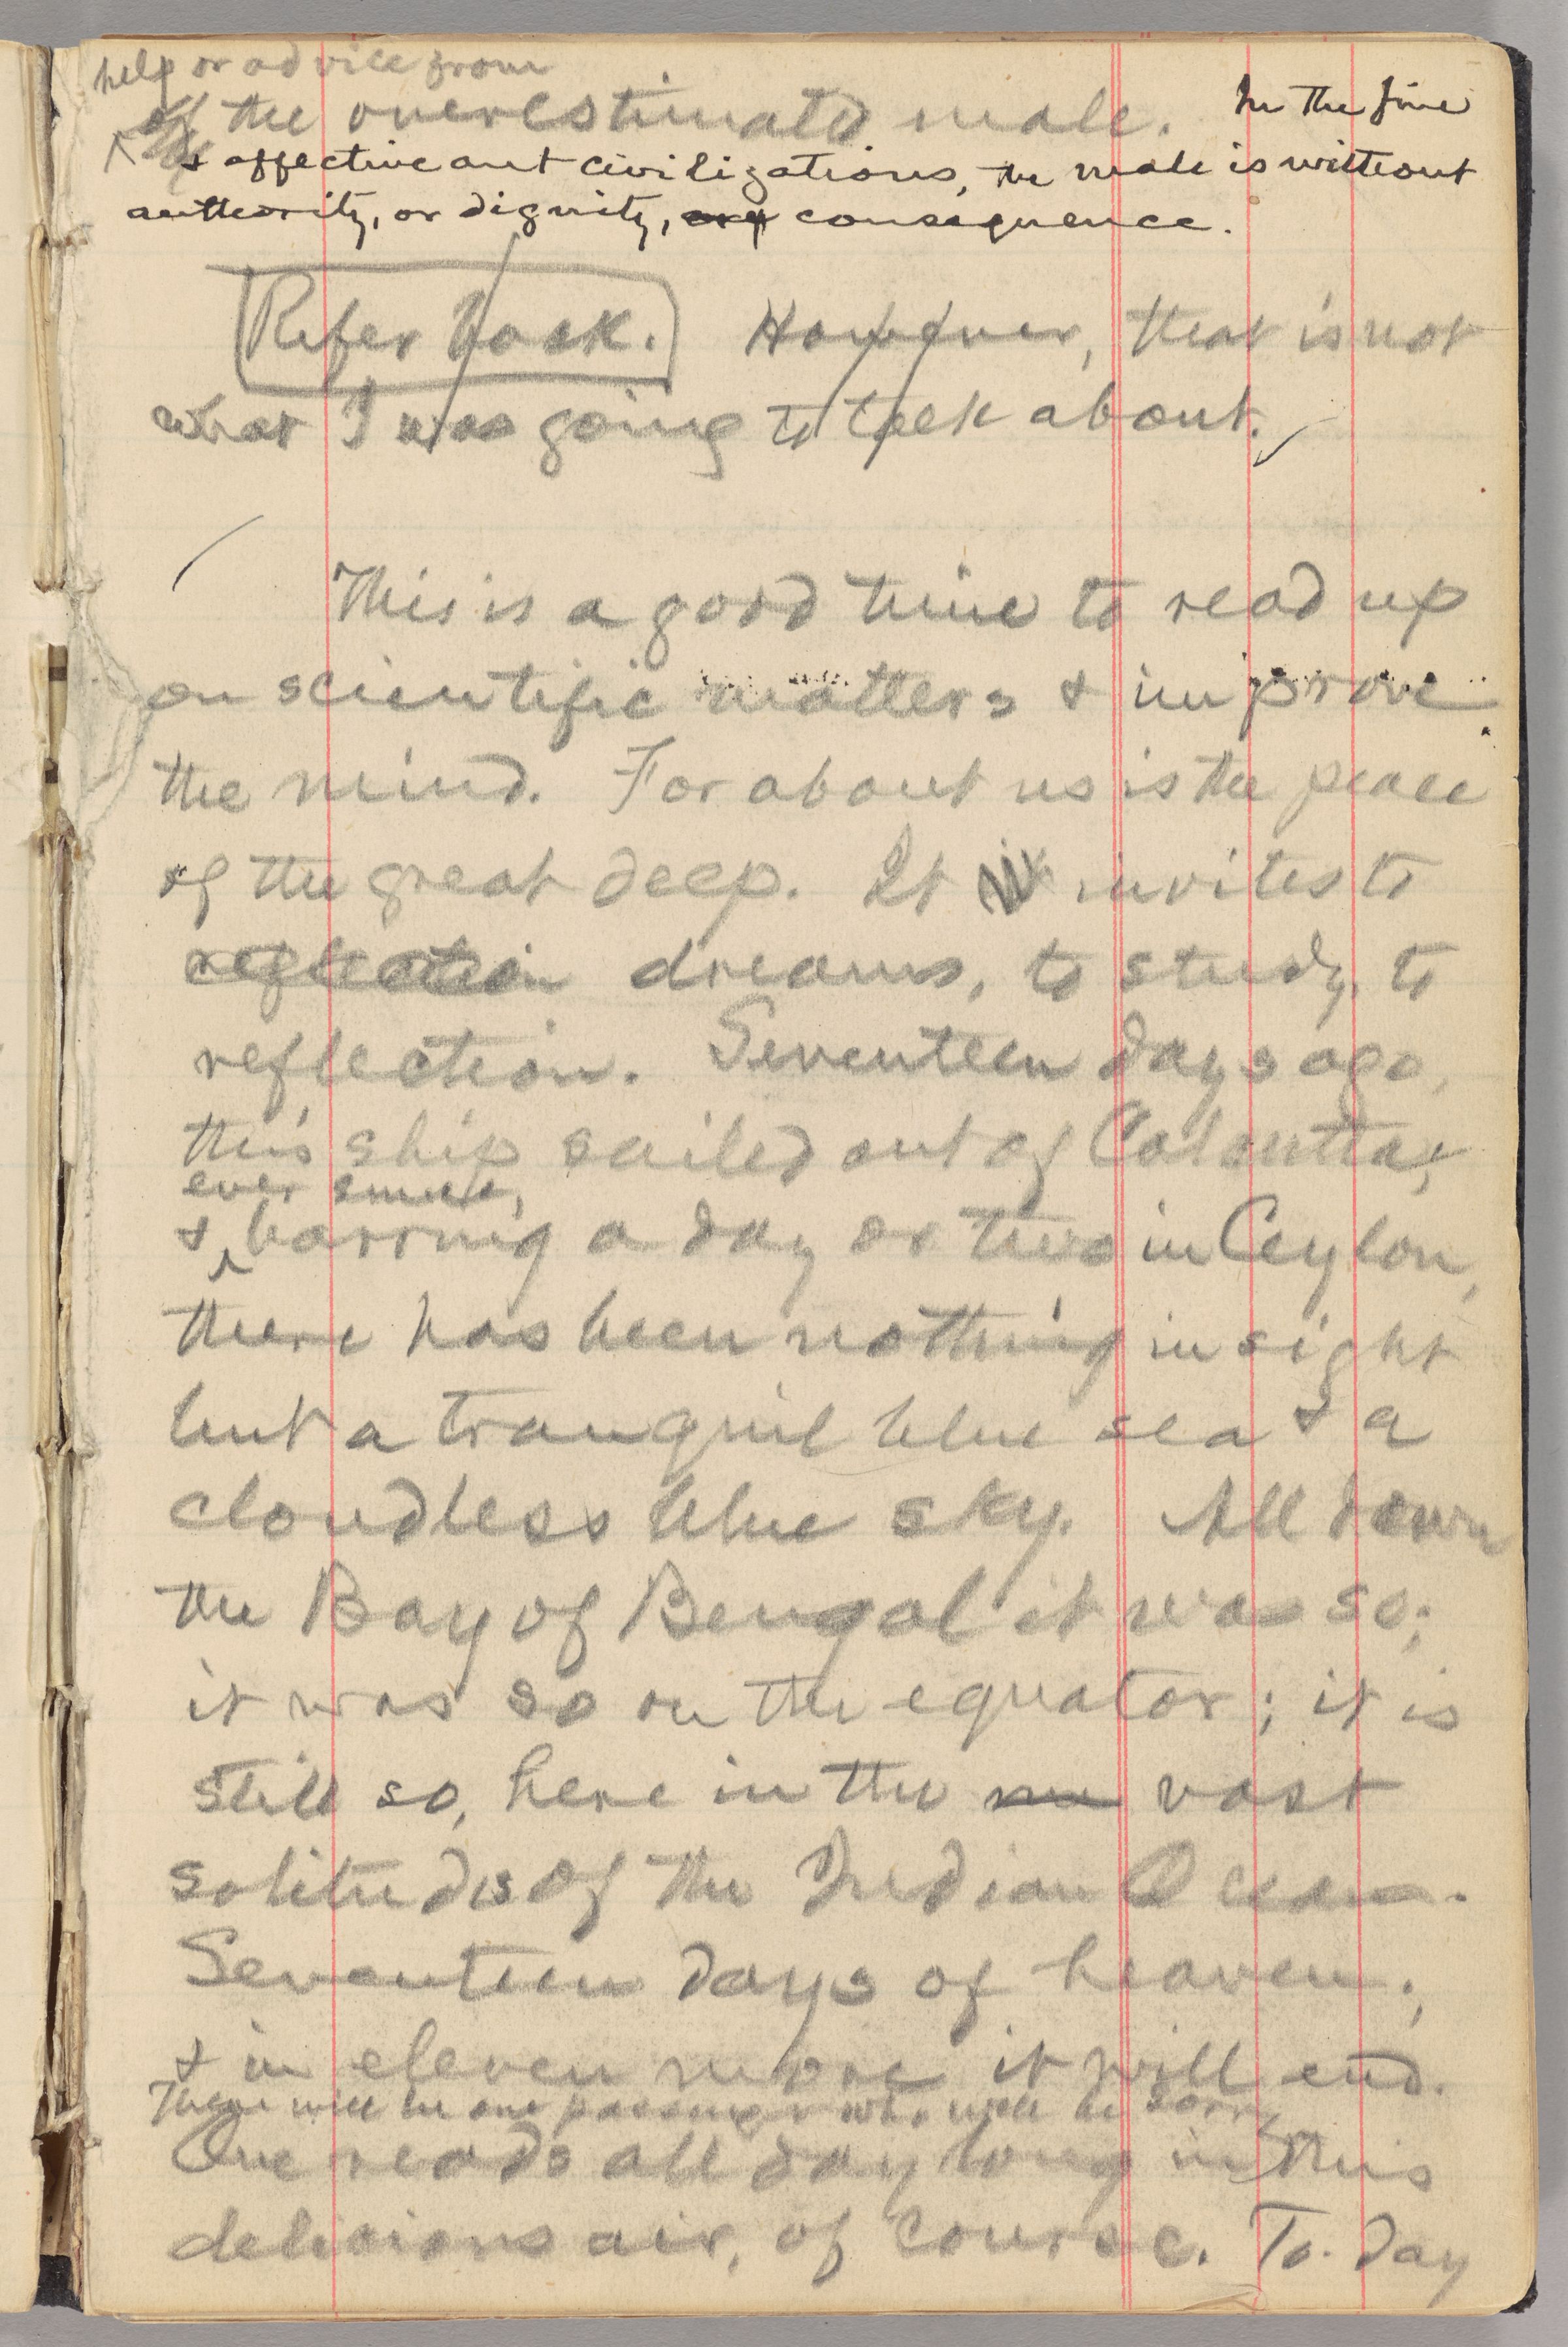 help or advice from
of the overestimated male. In the fine
& effective ant civilizations, the male is without
authority, or dignity, or consequence.
Refer back. However, that is not
what I was going to talk about.
This is a good time to read up
on scientific matters & improve
the mind. For about us is the peace
of the great deep. It invites to
reflection dreams, to study, to
reflection. Seventeen days ago,
this ship sailed out of Calcutta,
ever since,
& barring a day or two in Ceylon,
there has been nothing in sight
but a tranquil blue sea & a
cloudless blue sky. All down
the Bay of Bengal it was so;
it was so on the equator; it is
still so, here in the vast
solitudes of the Indian Ocean.
Seventeen days of heaven;
& in eleven more it will end.
There will be one passenger who will be sorry
One reads all day long in this
delicious air, of course. To-day